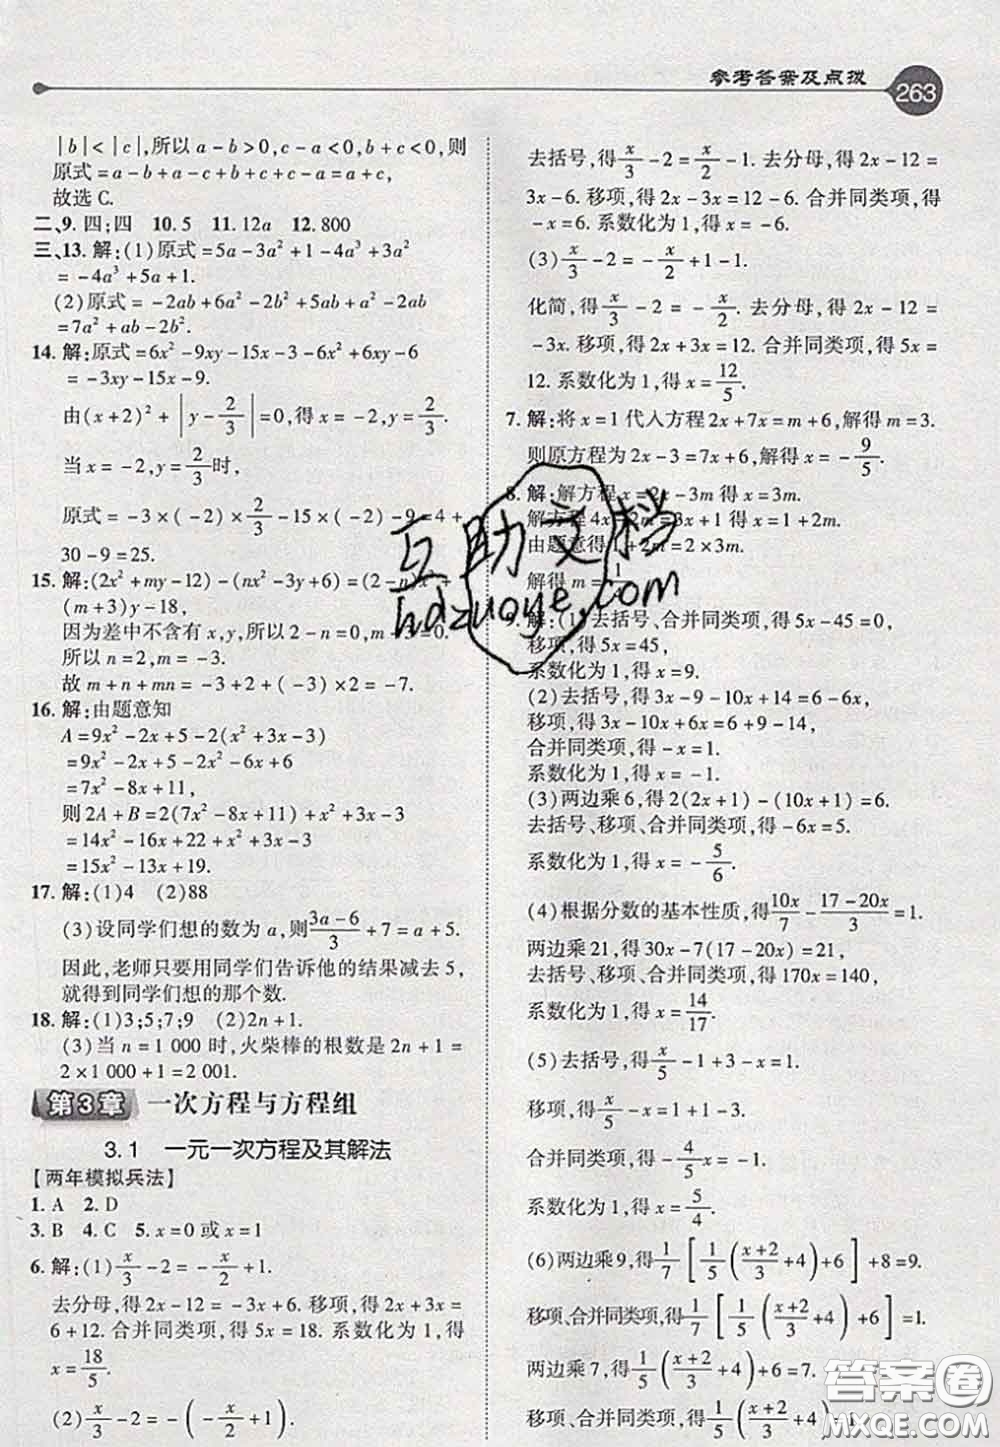 参考答案及点拨
263
|b|<|c|,所以 a-b>0,c-a<0,b+c<0,则
原式=a-b+a-c+b+c-a=a+c,
故选C.
二、9. 四;四 10. 5 11. 12a 12. 800
三、13. 解:(1)原式=5a-3a²+1-4a³+3a²
=-4a³+5a+1.
(2)原式=-2ab+6a²-2b²+5ab+a²-2ab
=7a²+ab-2b².
14. 解:原式=6x²-9xy-15x-3-6x²+6xy-6
=-3xy-15x-9.
由(x+2)²+|y-2/3|=0,得 x=-2,y=2/3.
当 x=-2,y=2/3时,
原式=-3×(-2)×2/3-15×(-2)-9=4+
30-9=25.
15. 解:(2x²+my-12)-(nx²-3y+6)=(2-n)x²+
(m+3)y-18,
因为差中不含有 x,y,所以 2-n=0,m+3=0,
所以 n=2,m=-3.
故 m+n+mn=-3+2+(-3)×2=-7.
16. 解:由题意知
A=9x²-2x+5-2(x²+3x-3)
=9x²-2x+5-2x²-6x+6
=7x²-8x+11,
则 2A+B=2(7x²-8x+11)+x²+3x-3
=14x²-16x+22+x²+3x-3
=15x²-13x+19.
17. 解:(1)4 (2)88
(3)设同学们想的数为 a,则(3a-6)/3+7=a+5.
因此,老师只要用同学们告诉他的结果减去 5,
就得到同学们想的那个数.
18. 解:(1)3;5;7;9 (2)2n+1.
(3)当 n=1 000 时,火柴棒的根数是 2n+1=
2×1 000+1=2001.
第3章 一次方程与方程组
3.1 一元一次方程及其解法
【两年模拟兵法】
1. A 2. D
3. B 4. C 5. x=0 或 x=1
6. 解:(1)x/3-2=-x/2+1.
去分母,得 2x-12=-3x+6. 移项,得 2x+3x=
6+12. 合并同类项,得 5x=18. 系数化为 1,得
x=18/5.
(2)x/3-2=-(-x/2+1).
去括号,得x/3-2=x/2-1. 去分母,得 2x-12=
3x-6. 移项,得 2x-3x=12-6. 合并同类项,得
-x=6. 系数化为 1,得 x=-6.
(3)x/3-2=-x/2+1-1.
化简,得x/3-2=-x/2. 去分母,得 2x-12=
-3x. 移项,得 2x+3x=12. 合并同类项,得 5x=
12. 系数化为 1,得 x=12/5.
7. 解:将 x=1 代入方程 2x+7x=m+6,解得 m=3.
则原方程为 2x-3=7x+6,解得 x=-9/5.
8. 解:解方程 x=2x-3m 得 x=3m.
解方程 4x-2m=3x+1 得 x=1+2m.
由题意得 1+2m=2×3m.
解得 m=1/4.
9. 解:(1)去括号、合并同类项,得 5x-45=0,
移项,得 5x=45,
系数化为 1,得 x=9.
(2)去括号,得 3x-9-10x+14=6-6x,
移项,得 3x-10x+6x=6+9-14,
合并同类项,得 -x=1.
系数化为 1,得 x=-1.
(3)两边乘 6,得 2(2x+1)-(10x+1)=6.
去括号、移项、合并同类项,得 -6x=5.
系数化为 1,得 x=-5/6.
(4)根据分数的基本性质,得10x/7-(17-20x)/3=1.
两边乘 21,得 30x-7(17-20x)=21,
去括号、移项、合并同类项,得 170x=140,
系数化为 1,得 x=14/17.
(5)去括号,得x/5-1+3-x=1.
移项,得x/5-x=1+1-3.
合并同类项,得 -4/5x=-1.
系数化为 1,得 x=5/4.
(6)两边乘 9,得1/7[1/5((x+2)/3+4)+6]+8=9.
移项、合并同类项,得1/7[1/5((x+2)/3+4)+6]=1.
两边乘 7,得1/5((x+2)/3+4)+6=7.
移项、合并同类项,得1/5((x+2)/3+4)=1.
互助文档
hdzuoye.com
答案圈
MXQE.COM